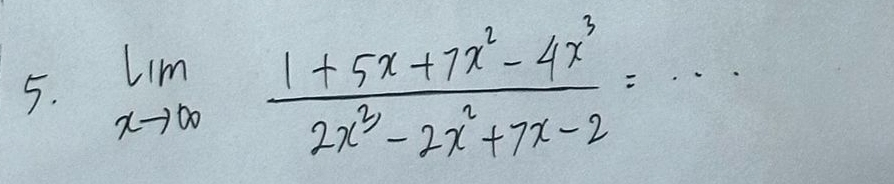 5. lim x→∞ (1 + 5x + 7x² - 4x³) / (2x³ - 2x² + 7x - 2) = ....